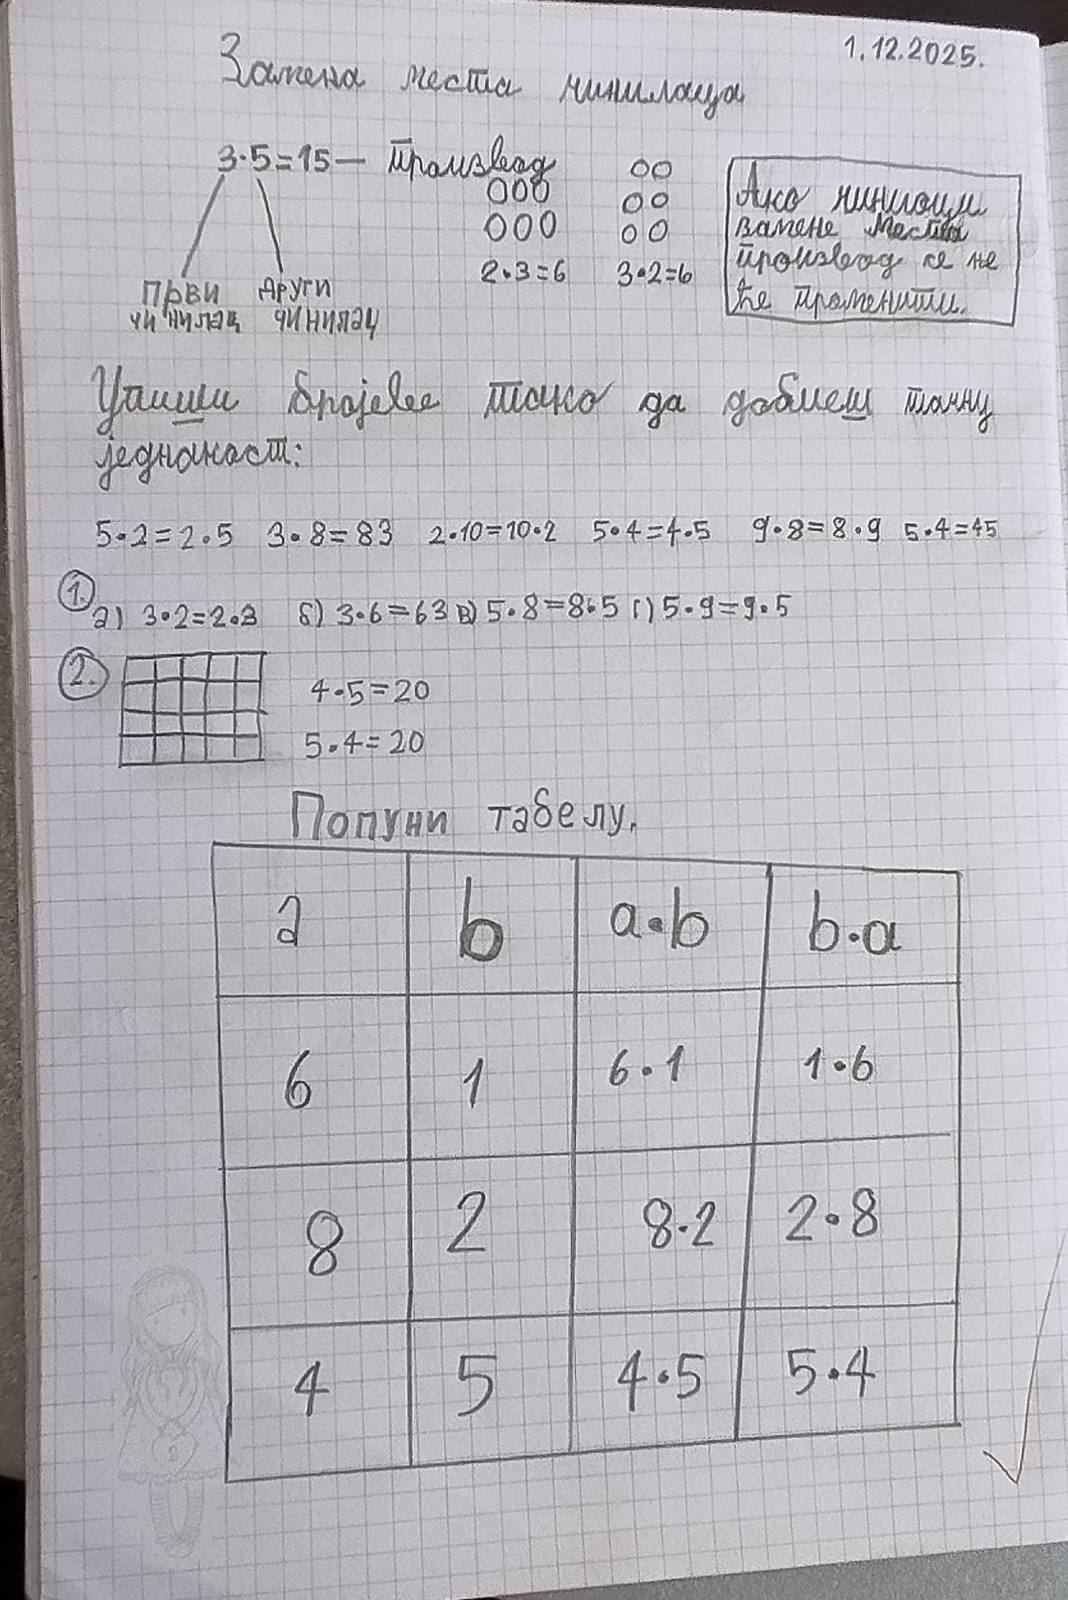 1.12.2025.
Замена места чинилаца
3·5=15— производ
Први чинилац
други чинилац
2·3=6
3·2=6
Ако чиниоци
замене места
производ се не
ће променити.
Упиши бројеве тако да добијеш тачну
једнакост:
5·2=2·5 3·8=83 2·10=10·2 5·4=4·5 9·8=8·9 5·4=45
1.
а) 3·2=2·3 б) 3·6=63 в) 5·8=8·5 г) 5·9=9·5
2.
4·5=20
5·4=20
Попуни табелу.
a b a·b b·a
6 1 6·1 1·6
8 2 8·2 2·8
4 5 4·5 5·4